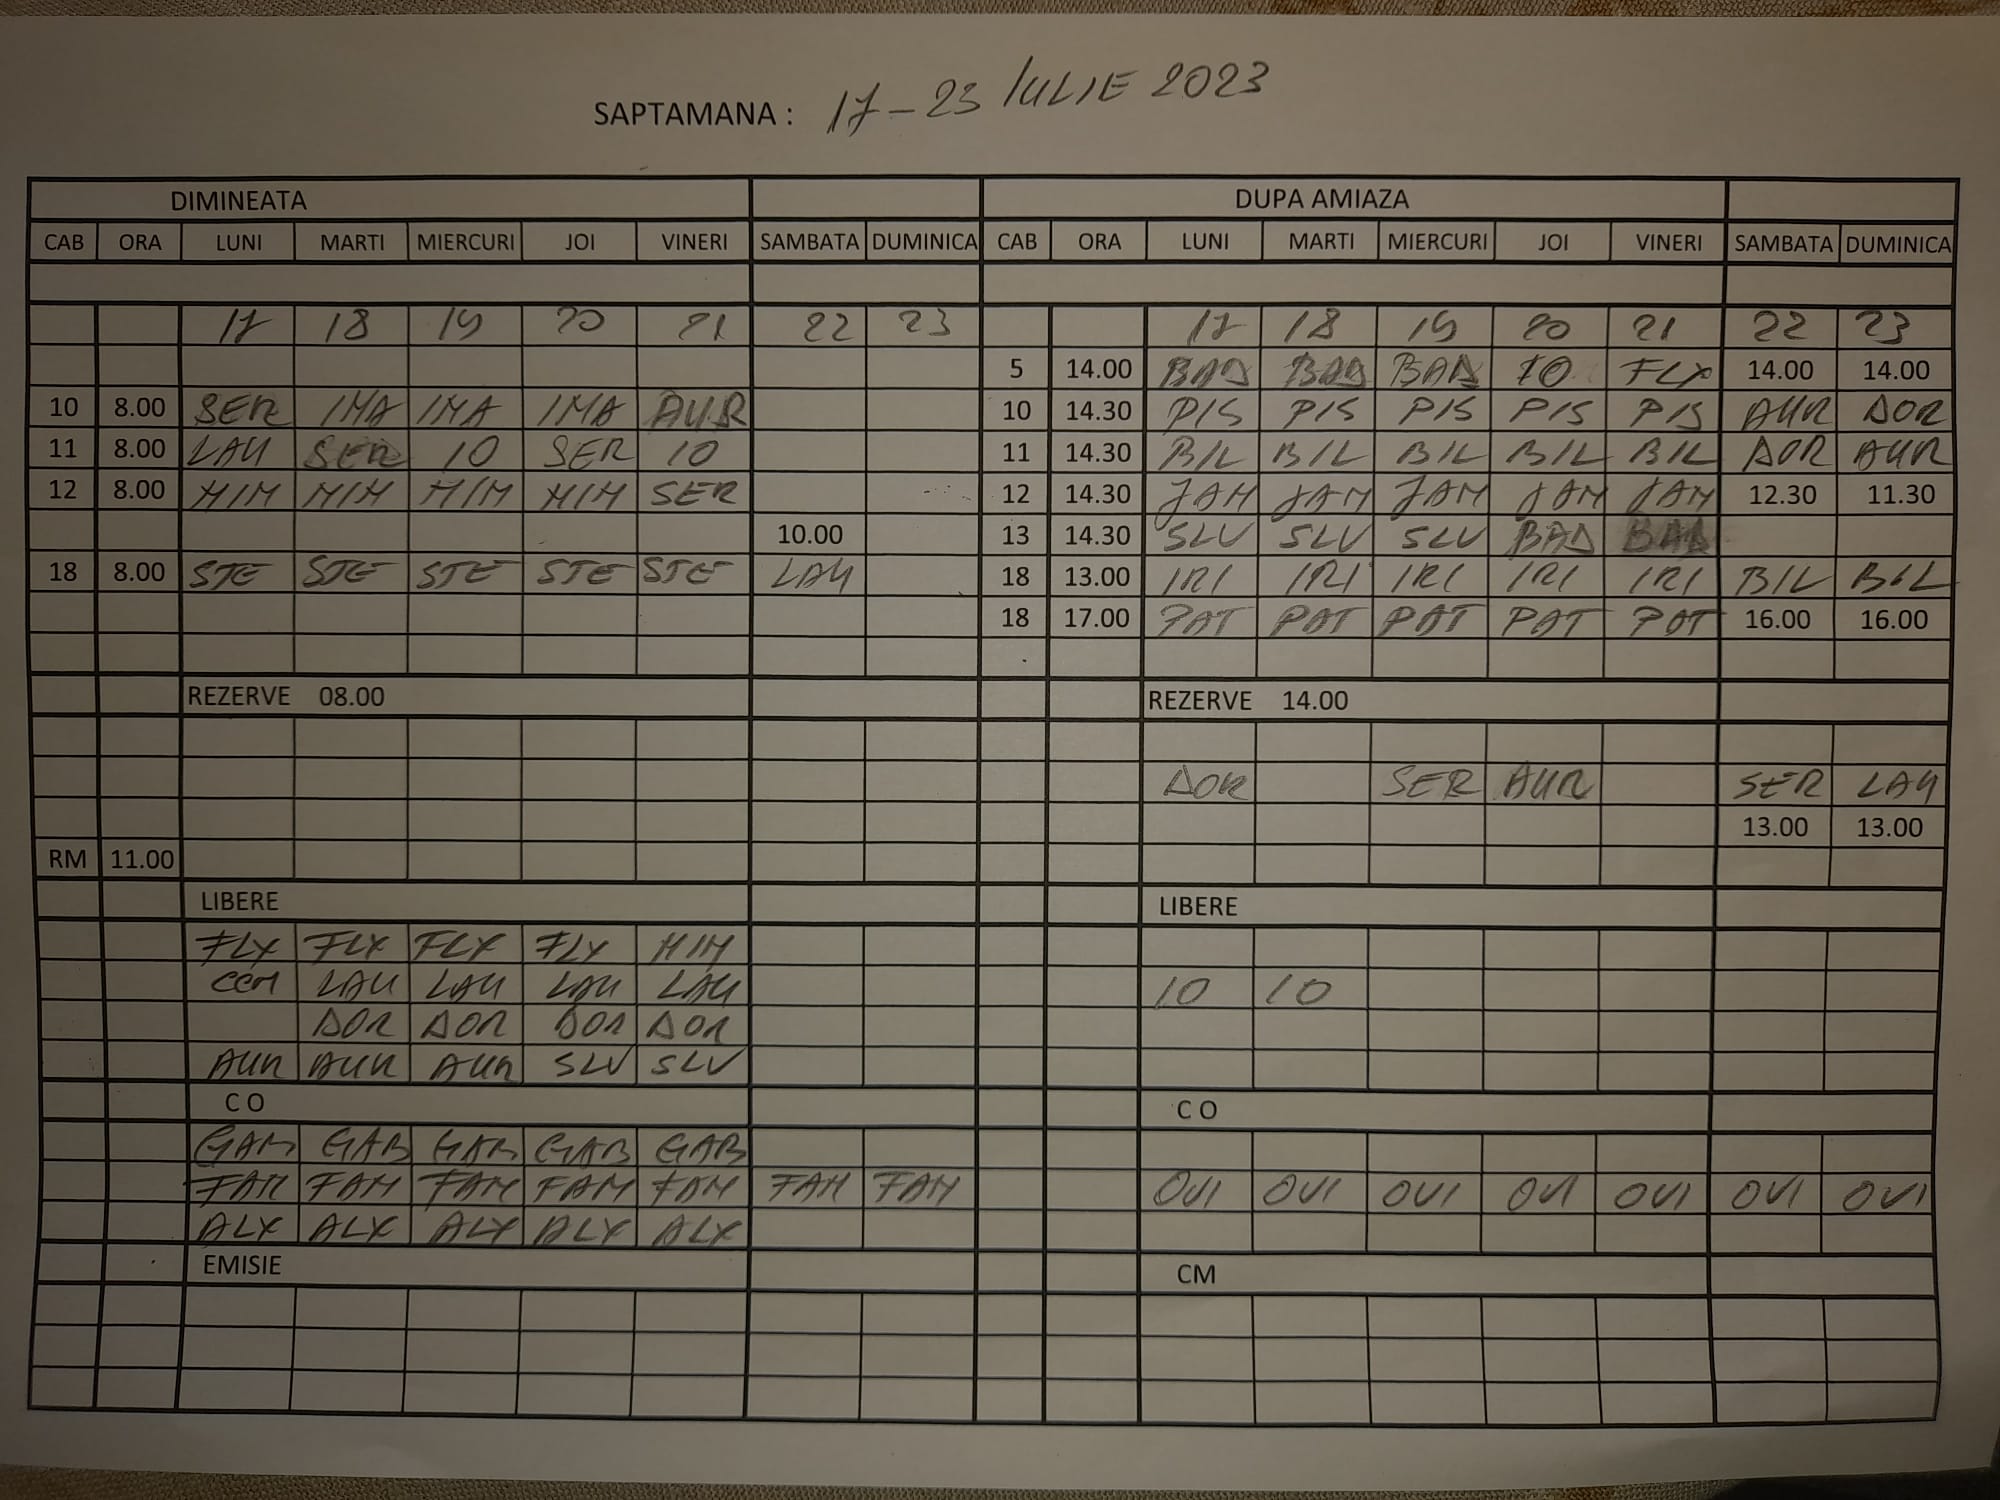 SAPTAMANA : 17-23 IULIE 2023
DIMINEATA DUPA AMIAZA
CAB ORA LUNI MARTI MIERCURI JOI VINERI SAMBATA DUMINICA CAB ORA LUNI MARTI MIERCURI JOI VINERI SAMBATA DUMINICA
17 18 19 20 21 22 23 17 18 19 20 21 22 23
5 14.00 BAD BAD BAD IO FLX 14.00 14.00
10 8.00 SER IMA IMA IMA AUR 10 14.30 PIS PIS PIS PIS PIS AUR DOR
11 8.00 LAU SER IO SER IO 11 14.30 BIL BIL BIL BIL BIL DOR AUR
12 8.00 MIM MIM MIM MIM SER 12 14.30 JAM JAM JAM JAM JAM 12.30 11.30
10.00 13 14.30 SLV SLV SLV BAD BAD
18 8.00 STE STE STE STE STE LAU 18 13.00 IRI IRI IRI IRI IRI BIL BIL
18 17.00 PAT PAT PAT PAT PAT 16.00 16.00
REZERVE 08.00 REZERVE 14.00
DOR SER AUR SER LAU
13.00 13.00
RM 11.00
LIBERE LIBERE
FLX FLX FLX FLX MIM
CCM LAU LAU LAU LAU IO IO
DOR DOR DOR DOR
AUR AUR AUR SLV SLV
C O C O
GAB GAB GAB GAB GAB
FAM FAM FAM FAM FAM FAM FAM OVI OVI OVI OVI OVI OVI OVI
ALX ALX ALX ALX ALX
EMISIE CM